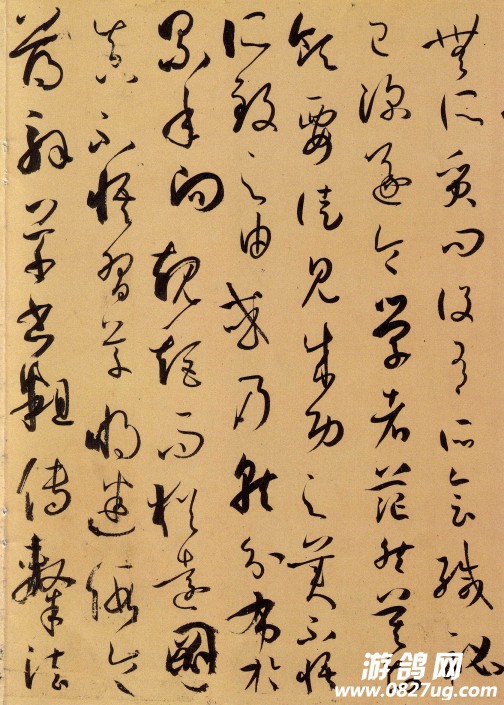 無所質問設有所會緘秘
已深遂令學者茫然莫知
領要徒見成功之美不悟
所致之由或乃就分布於
累年向規矩而猶遠圖
真不悟習草將迷假令
薄解草書粗傳隸法
游鸽网
www.0827ug.com